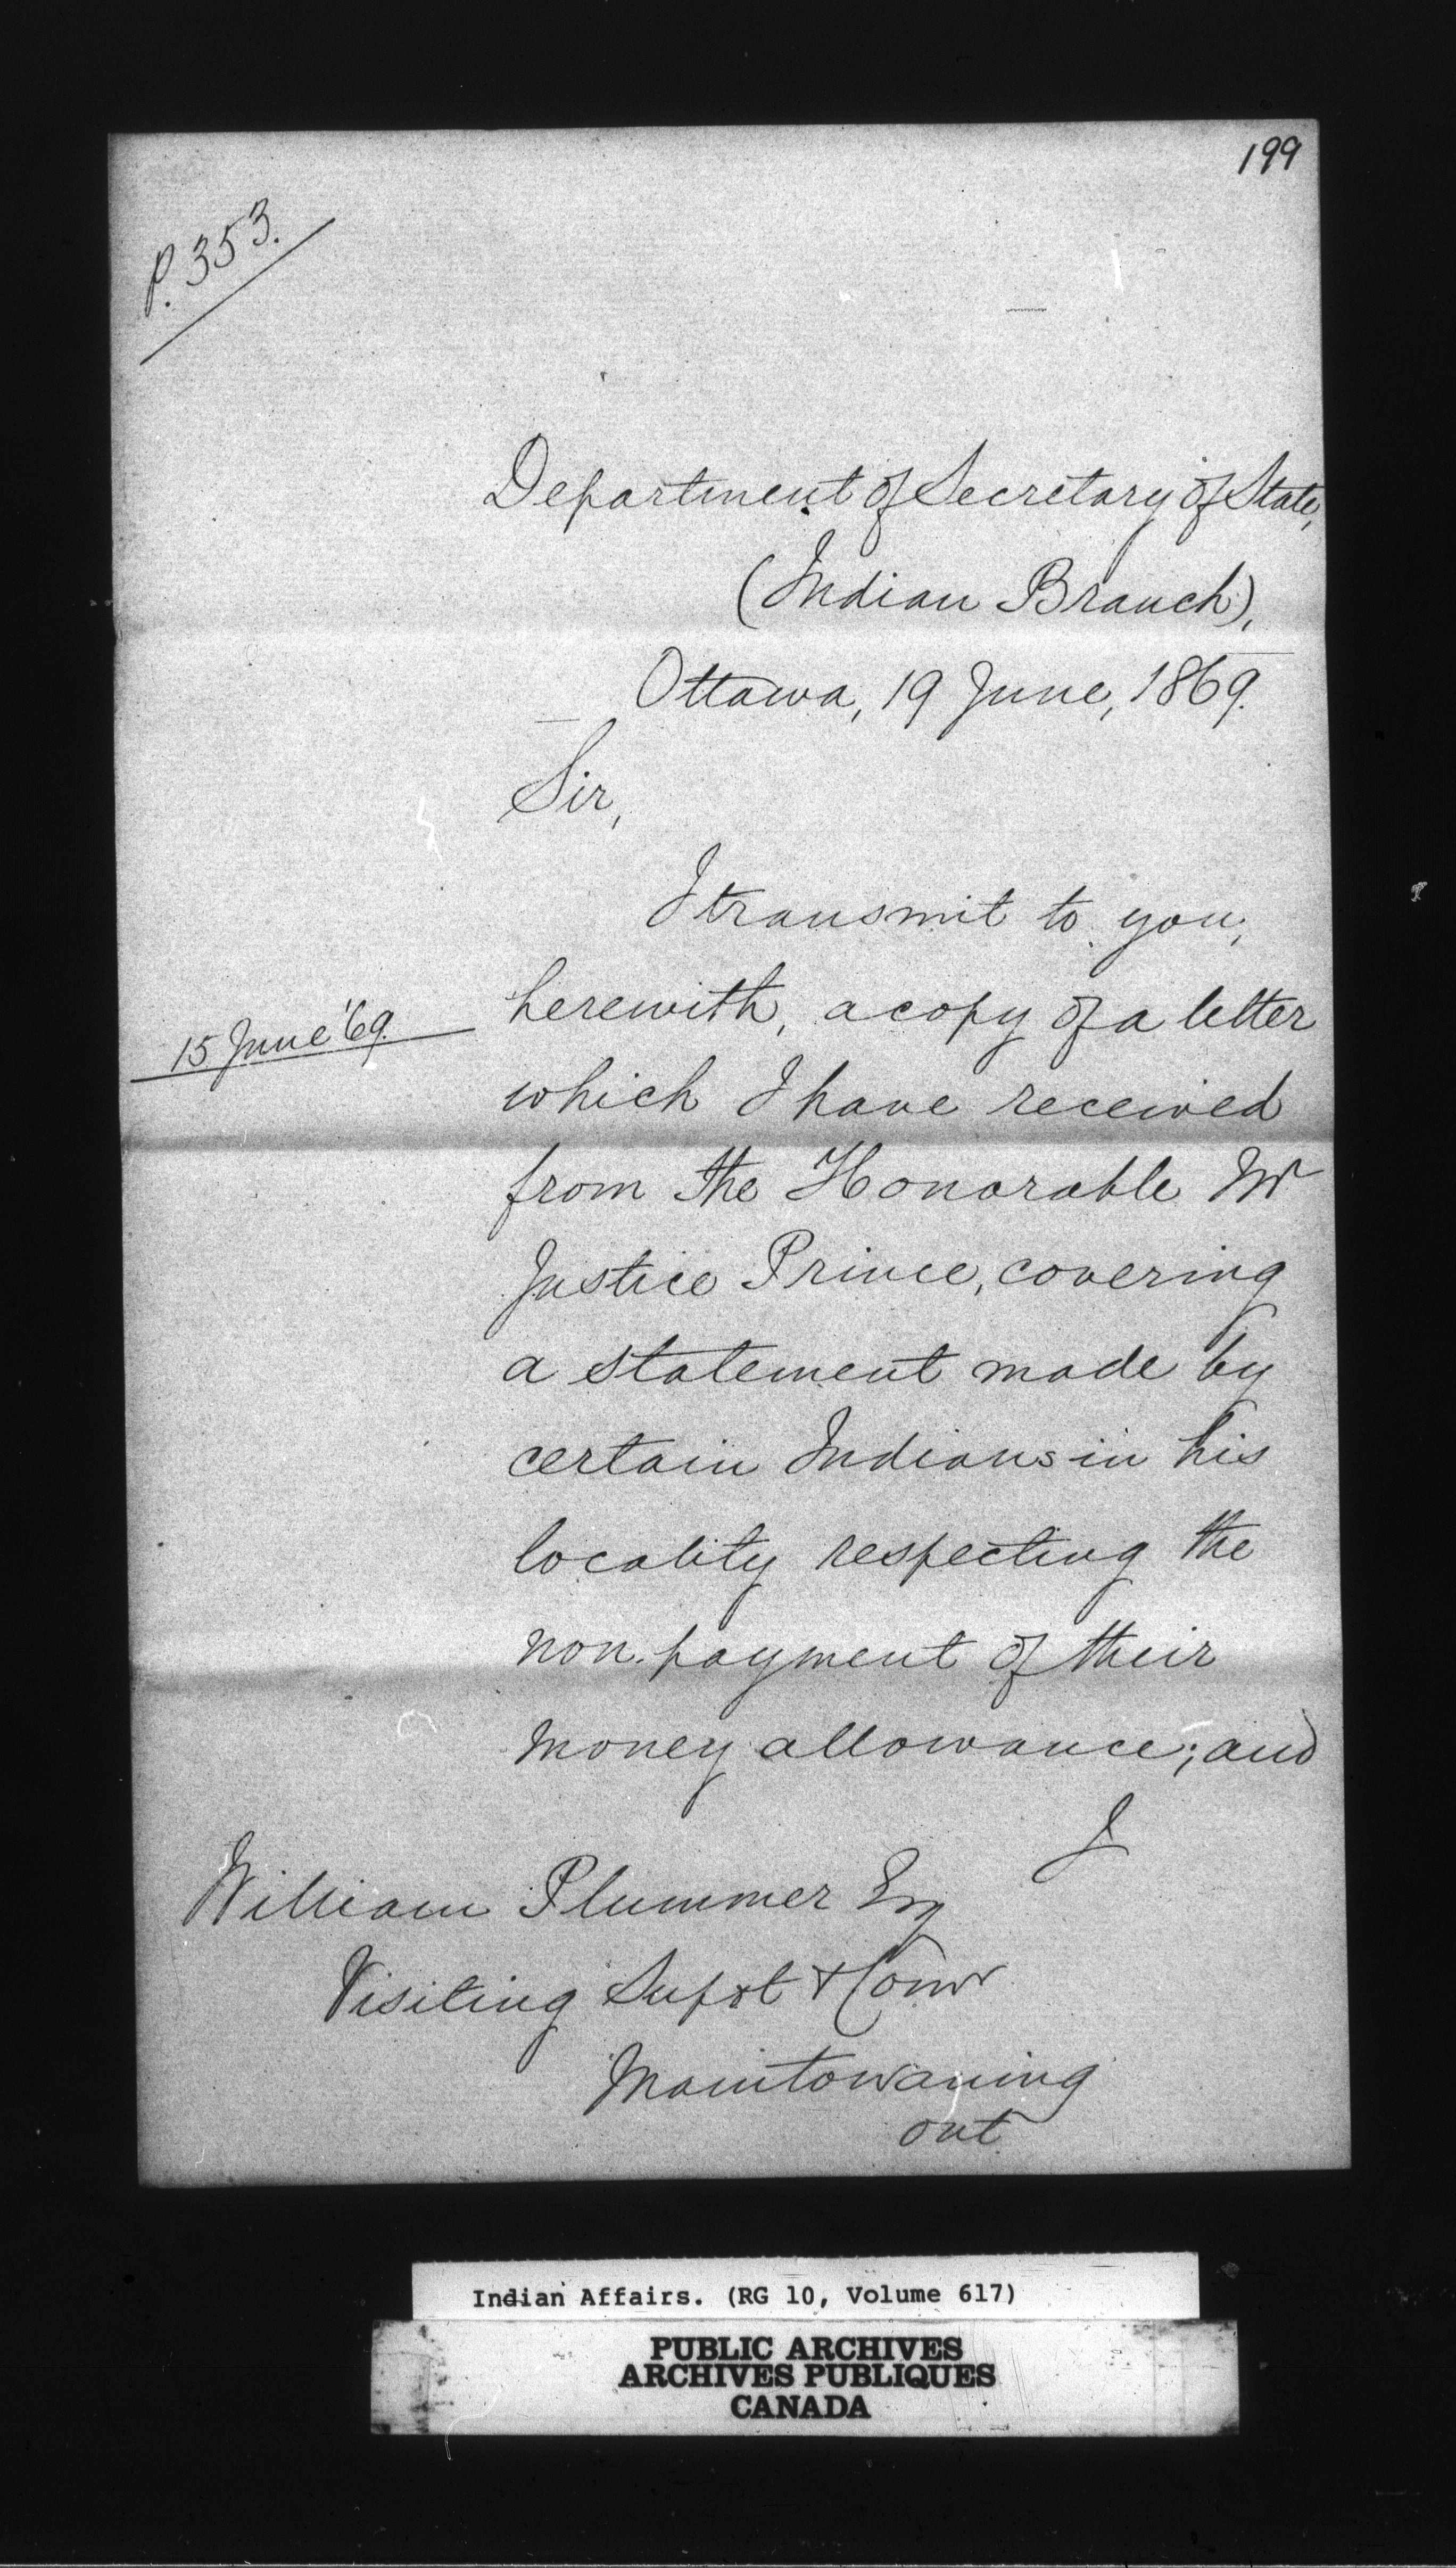 199
P. 353.
Department of Secretary of State,
(Indian Branch),
Ottawa, 19 June, 1869.
Sir,
I transmit to you,
herewith, a copy of a letter
15 June '69.
which I have received
from the Honorable Mr
Justice Prince, covering
a statement made by
certain Indians in his
locality respecting the
non-payment of their
money allowance; and
I
William Plummer Esq
Visiting Supdt & Comr
Manitowaning
Ont
Indian Affairs. (RG 10, Volume 617)
PUBLIC ARCHIVES
ARCHIVES PUBLIQUES
CANADA